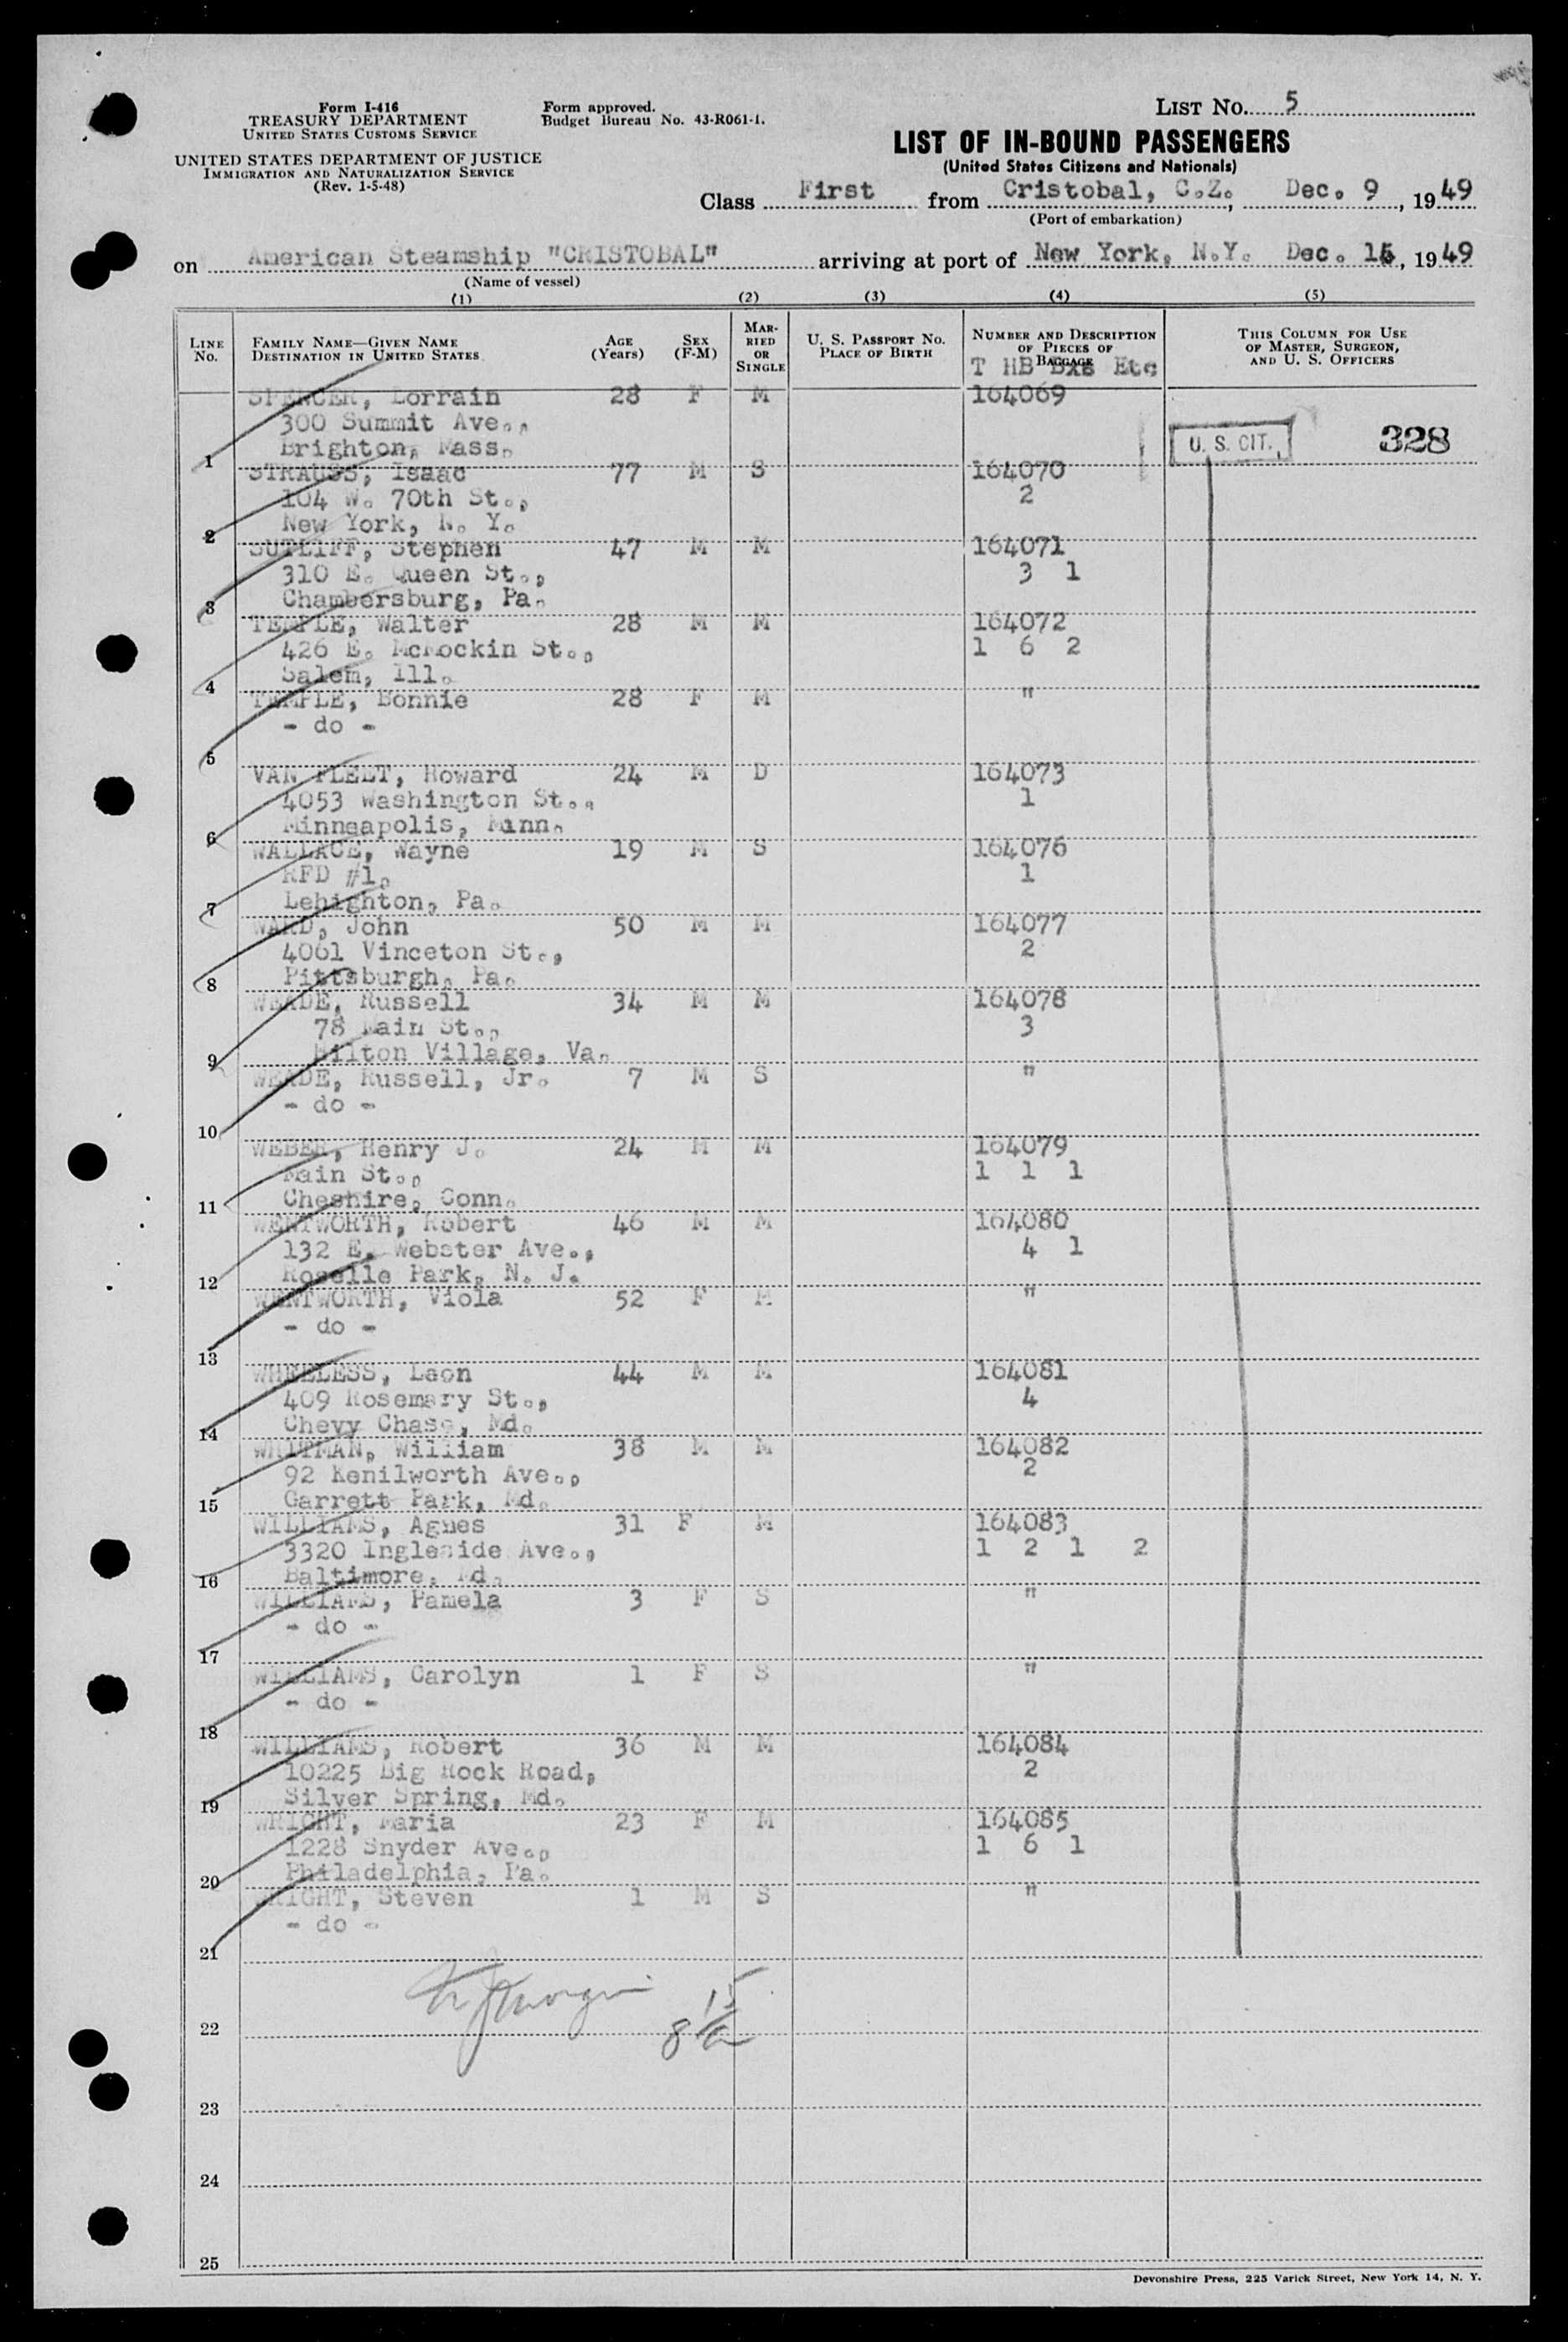 Form I-416
TREASURY DEPARTMENT
UNITED STATES CUSTOMS SERVICE
UNITED STATES DEPARTMENT OF JUSTICE
IMMIGRATION AND NATURALIZATION SERVICE
(Rev. 1-5-48)
Form approved.
Budget Bureau No. 43-R061-1.
LIST No. 5
LIST OF IN-BOUND PASSENGERS
(United States Citizens and Nationals)
Class First from Cristobal, C.Z., Dec. 9, 1949
(Port of embarkation)
on American Steamship "CRISTOBAL" arriving at port of New York, N.Y. Dec. 15, 1949
(Name of vessel)
(1) (2) (3) (4) (5)
LINE No. FAMILY NAME—GIVEN NAME DESTINATION IN UNITED STATES AGE (Years) SEX (F-M) MARRIED OR SINGLE U. S. PASSPORT No. PLACE OF BIRTH NUMBER AND DESCRIPTION OF PIECES OF BAGGAGE THIS COLUMN FOR USE OF MASTER, SURGEON, AND U. S. OFFICERS
T HB Bxs Etc
SPENCER, Lorrain 28 F M 164069
300 Summit Ave.,
1 Brighton, Mass. U. S. CIT. 328
STRAUSS, Isaac 77 M S 164070
104 W. 70th St., 2
2 New York, N. Y.
SUTLIFF, Stephen 47 M M 164071
310 E. Queen St., 3 1
3 Chambersburg, Pa.
TEMPLE, Walter 28 M M 164072
426 E. McMockin St., 1 6 2
4 Salem, Ill.
TEMPLE, Bonnie 28 F M "
- do -
5
VAN FLEET, Howard 24 M D 164073
4053 Washington St., 1
6 Minneapolis, Minn.
WALLACE, Wayne 19 M S 164076
RFD #1, 1
7 Lehighton, Pa.
WARD, John 50 M M 164077
4061 Vinceton St., 2
8 Pittsburgh, Pa.
WEADE, Russell 34 M M 164078
78 Main St., 3
9 Hilton Village, Va.
WEADE, Russell, Jr. 7 M S "
- do -
10
WEBER, Henry J. 24 M M 164079
Main St., 1 1 1
11 Cheshire, Conn.
WENTWORTH, Robert 46 M M 164080
132 E. Webster Ave., 4 1
12 Roselle Park, N. J.
WENTWORTH, Viola 52 F M "
- do -
13
WHEELESS, Leon 44 M M 164081
409 Rosemary St., 4
14 Chevy Chase, Md.
WHITMAN, William 38 M M 164082
92 Kenilworth Ave., 2
15 Garrett Park, Md.
WILLIAMS, Agnes 31 F M 164083
3320 Ingleside Ave., 1 2 1 2
16 Baltimore, Md.
WILLIAMS, Pamela 3 F S "
- do -
17
WILLIAMS, Carolyn 1 F S "
- do -
18
WILLIAMS, Robert 36 M M 164084
10225 Big Rock Road, 2
19 Silver Spring, Md.
WRIGHT, Maria 23 F M 164085
1228 Snyder Ave., 1 6 1
20 Philadelphia, Pa.
WRIGHT, Steven 1 M S "
- do -
21
22
23
24
25
Devonshire Press, 225 Varick Street, New York 14, N. Y.